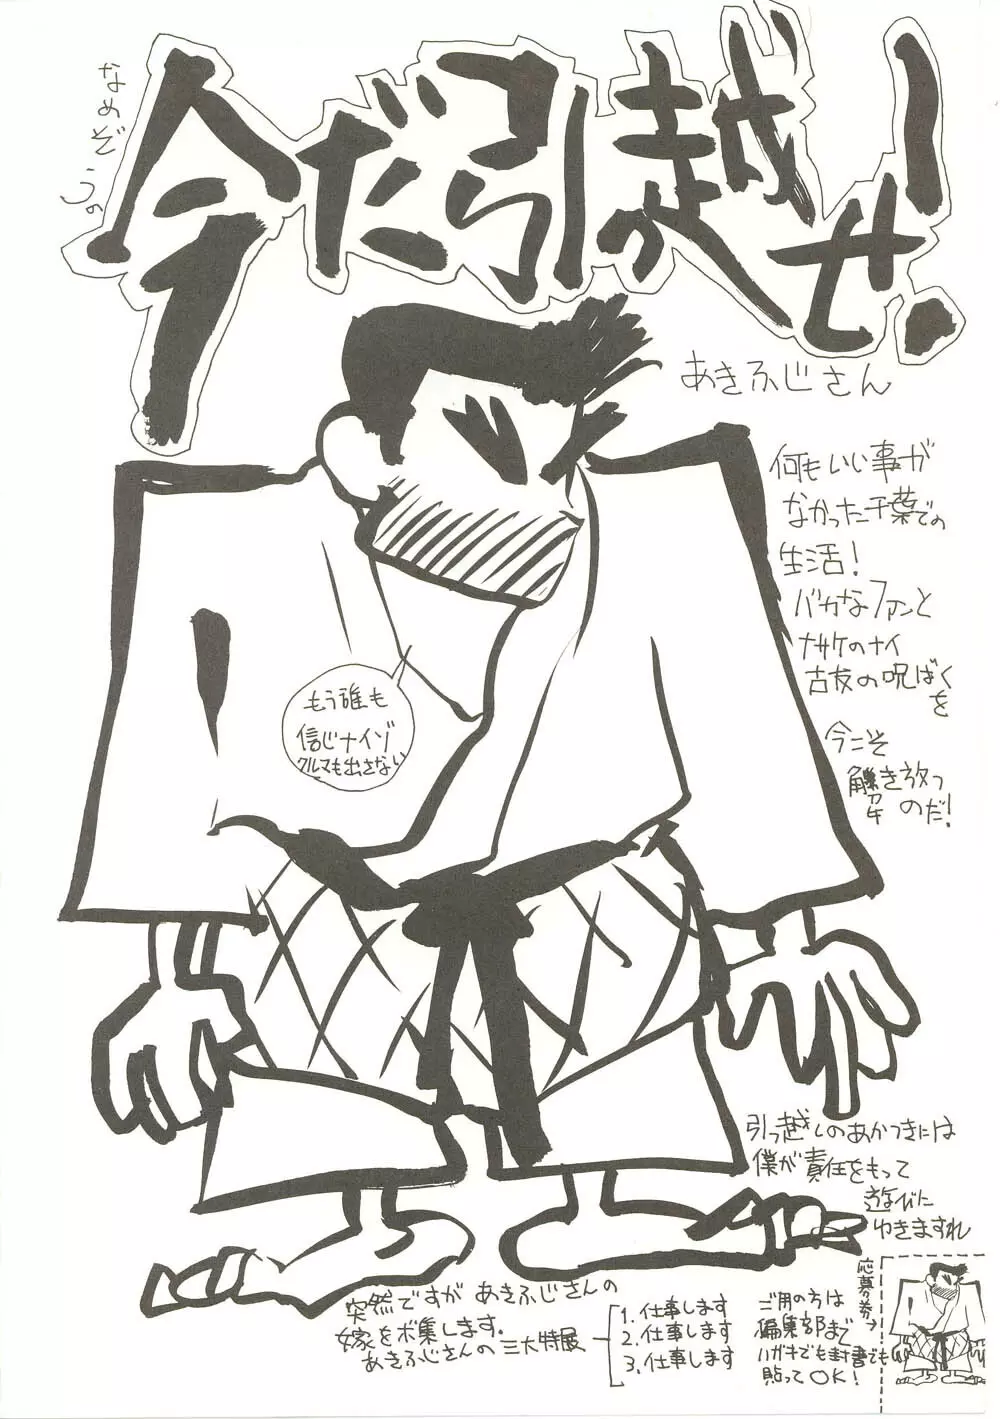 なめぞうの
今だ引っ越せ!
あきふじさん
何もいい事が
なかった千葉での
生活!
バカなファンと
ナサケのナイ
古友の呪ばく
を
今こそ
解き放つ
のだ!
もう誰も
信じナイゾ
クルマも出さない
引っ越しのあかつきには
僕が責任をもって
遊びに
ゆきますれ
突然ですが あきふじさんの
嫁をボ集します.
あきふじさんの 三大特展
1. 仕事します
2. 仕事します
3. 仕事します
ご用の方は
偏集部まで
ハガキでも封書でも
貼ってOK!
応募券→